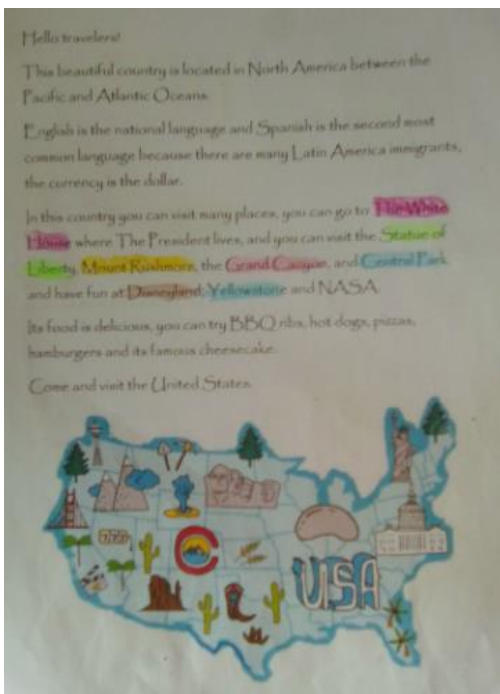 Hello travelers!
This beautiful country is located in North America between the
Pacific and Atlantic Oceans.
English is the national language and Spanish is the second most
common language because there are many Latin America immigrants,
the currency is the dollar.
In this country you can visit many places, you can go to The White
House where The President lives, and you can visit the Statue of
Liberty, Mount Rushmore, the Grand Canyon, and Central Park
and have fun at Disneyland, Yellowstone and NASA.
Its food is delicious, you can try BBQ ribs, hot dogs, pizzas,
hamburgers and its famous cheesecake.
Come and visit the United States.
777
C
USA